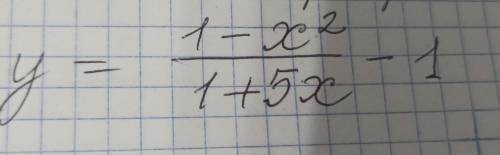 y = \frac{1 - x^2}{1 + 5x} - 1